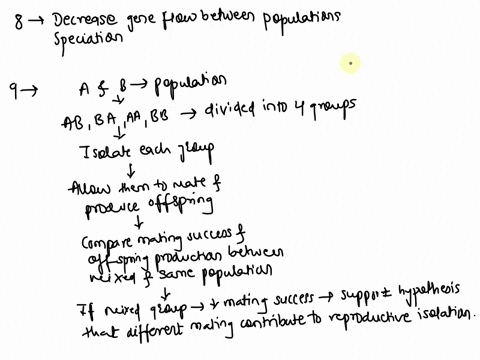 8 → Decrease gene flow between populations
Speciation
9 → A & B → population
AB, BA, AA, BB → divided into 4 groups
Isolate each group
Allow them to mate &
produce offspring
Compare mating success &
offspring production between
mixed & same population
If mixed group → ↓ mating success → support hypothesis
that different mating contribute to reproductive isolation.